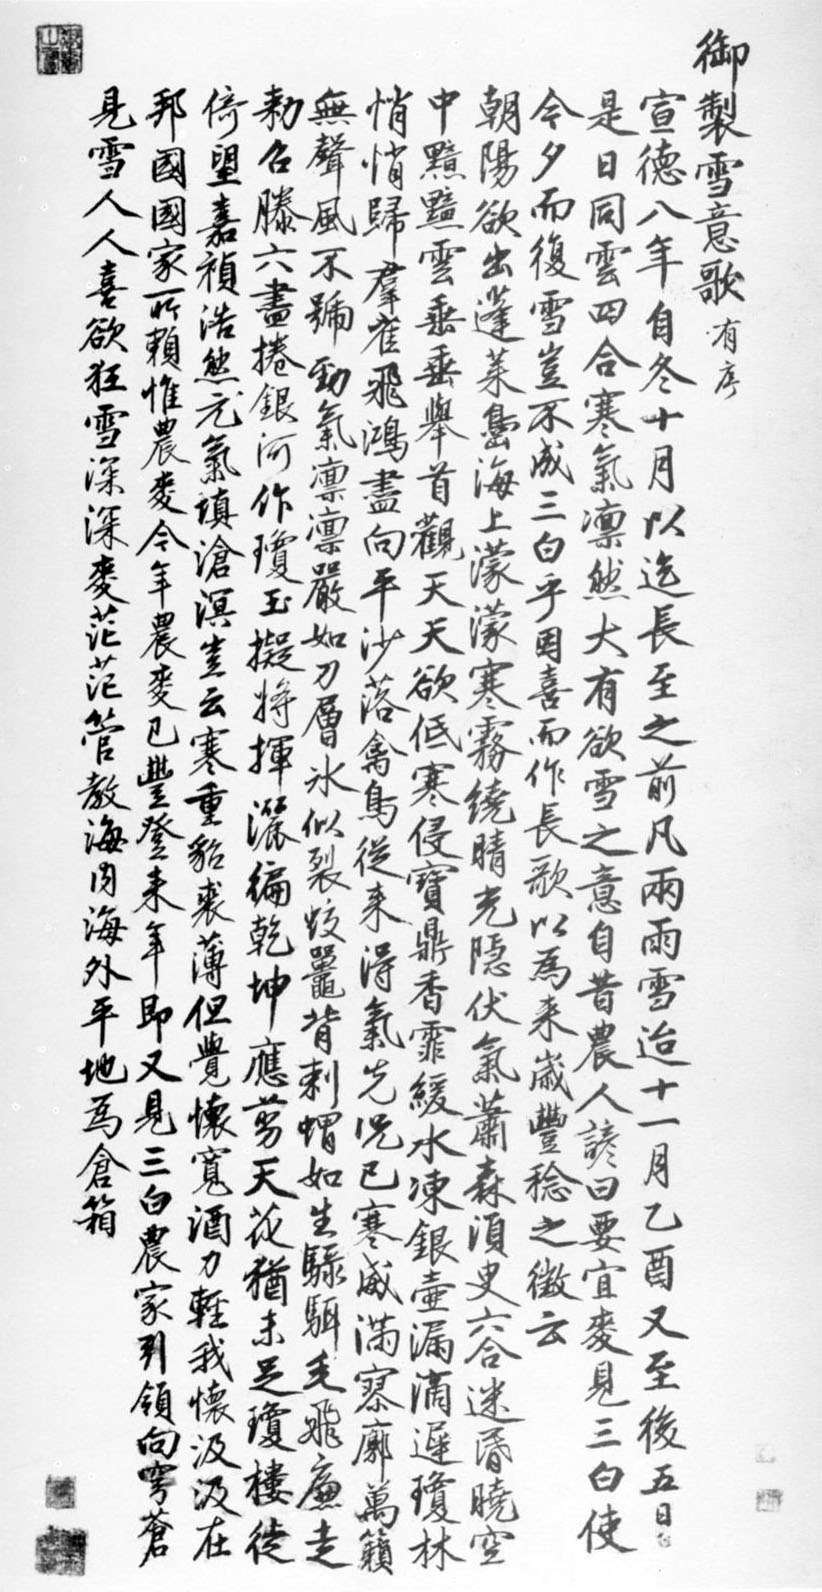 御製雪意歌 有序
宣德八年自冬十月以迄長至之前凡兩雨雪迨十一月乙酉又至後五日也
是日同雲四合寒氣凛然大有欲雪之意自昔農人諺曰要宜麥見三白使
今夕而復雪豈不成三白乎因喜而作長歌以為来歲豐稔之徵云
朝陽欲出蓬萊島海上濛濛寒霧繞晴光隱伏氣蕭森須臾六合迷昏曉空
中黯黯雲垂垂舉首觀天天欲低寒侵寶鼎香霏緩水凍銀壺漏滴遲瓊林
悄悄歸群雀飛鴻盡向平沙落禽鳥従来得氣先況已寒威滿寥廓萬籟
無聲風不號勁氣凛凛嚴如刀層冰似裂蛟鼉背刺蝟如生騄駬毛飛廉走
勅召滕六盡捲銀河作瓊玉擬将揮灑徧乾坤應剪天花猶未足瓊樓徙
倚望嘉禎浩然元氣填滄溟豈云寒重貂裘薄但覺懷寬酒力輕我懷汲汲在
邦國國家所賴惟農麥今年農麥已豐登来年即又見三白農家引領向穹蒼
見雪人人喜欲狂雪深深麥茫茫管教海内海外平地為倉箱